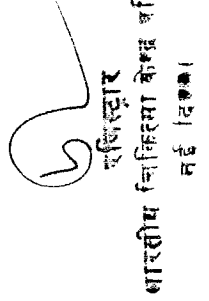 रजिस्ट्रार
भारतीय चिकित्सा केन्द्रीय
नई दिल्ली